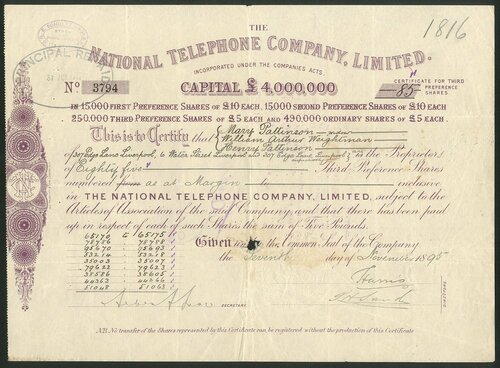 1816
THE
NATIONAL TELEPHONE COMPANY, LIMITED.
INCORPORATED UNDER THE COMPANIES ACTS.
CAPITAL £4,000,000
PRINCIPAL REPAID
No 3794
CERTIFICATE FOR THIRD
85
PREFERENCE SHARES
IN 15,000 FIRST PREFERENCE SHARES OF £10 EACH, 15000 SECOND PREFERENCE SHARES OF £10 EACH
250,000 THIRD PREFERENCE SHARES OF £5 EACH AND 490,000 ORDINARY SHARES OF £5 EACH.
This is to Certify that Mary Pattinson widow
William Arthur Weightman
Henry Pattinson
of 307 Edge Lane Liverpool, 6 Water Street Liverpool and 307 Edge Lane Liverpool is the Proprietors
of Eighty five Third Preference Shares
numbered from as at Margin to inclusive
in THE NATIONAL TELEPHONE COMPANY, LIMITED, subject to the
Articles of Association of the said Company, and that there has been paid
up in respect of each of such Shares the sum of Five Pounds.
65170 to 65175
Given under the Common Seal of the Company
the Seventh day of November 1895
SECRETARY
DIRECTORS
N.B. No transfer of the Shares represented by this Certificate can be registered without the production of this Certificate